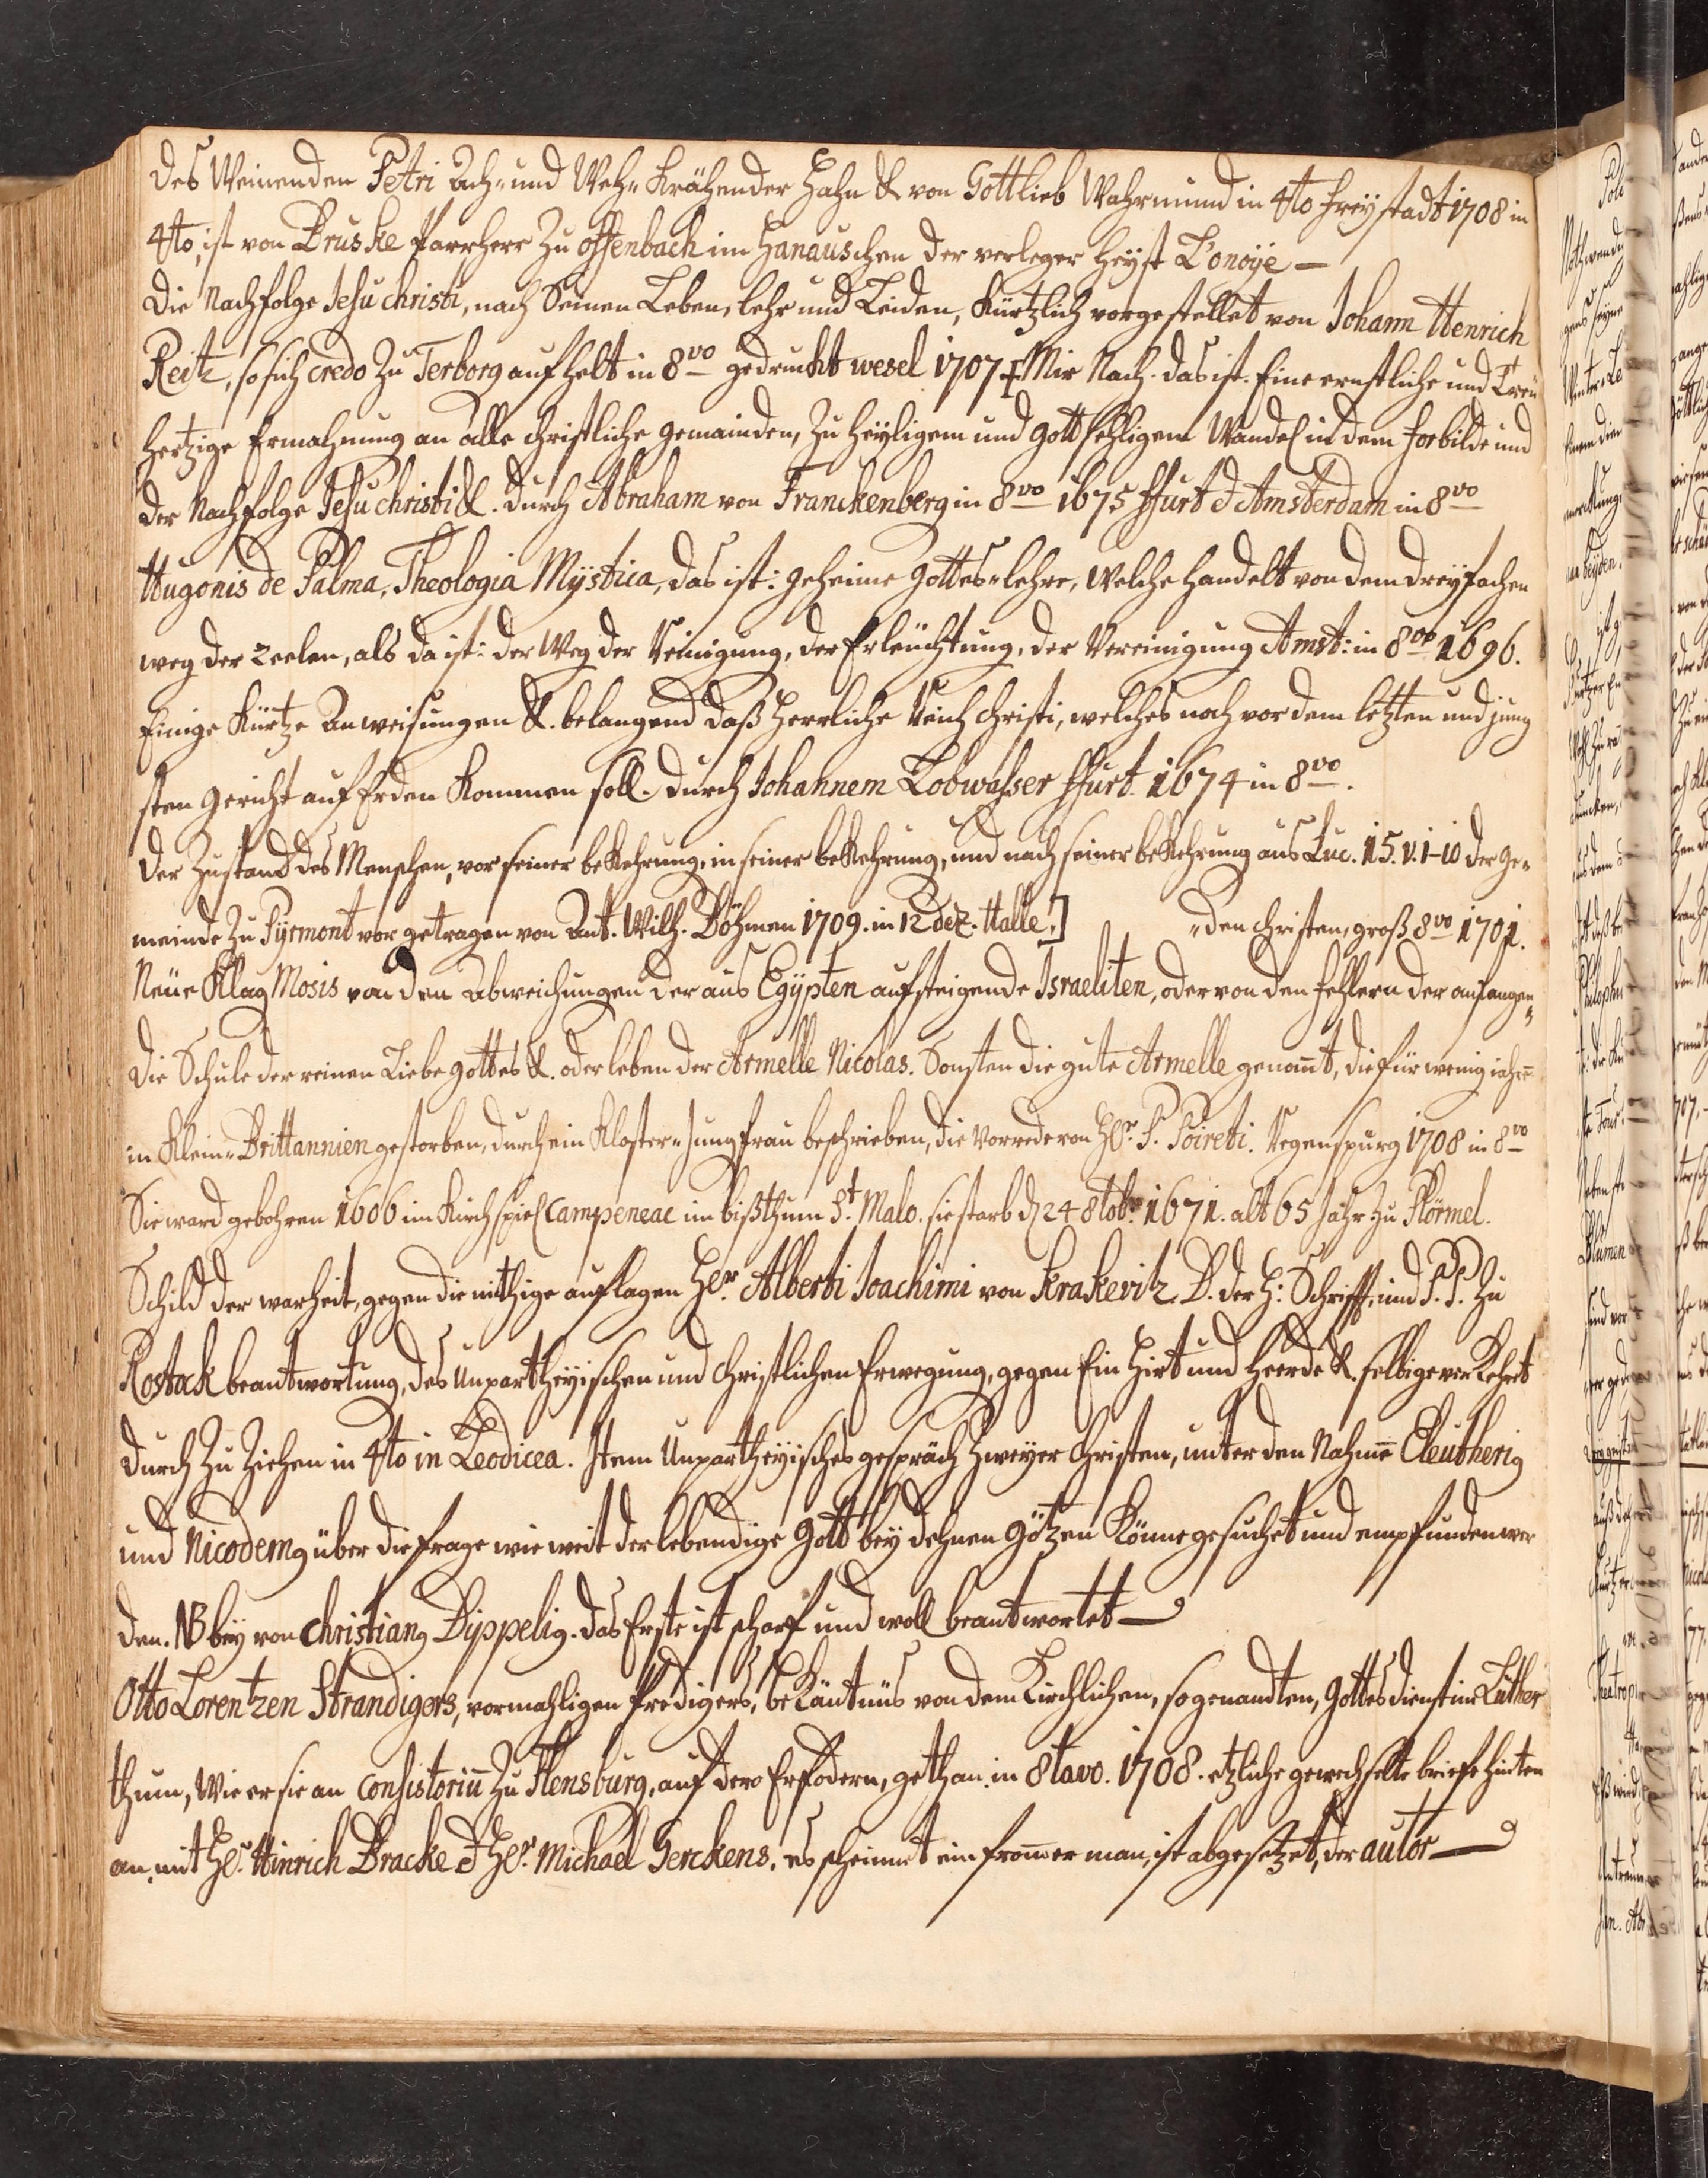 Des Weinenden Petri Ach- und Weh- Krähender Hahn &. von Gottlieb Wahrmund in 4to Freystadt 1708 in
4to, ist von Bruske Pfarrherr zu offenbach im Hanauschen der verleger heyst L'onoÿe —
Die Nachfolge Jesu christi, nach Seinen Leben, lehr und Leiden, kürtzlich vorgestellet von Johann Henrich
Reitz, so sich credo zu Terborg aufhelt in 8vo gedruckt wesel 1707. Mir Nach. das ist. Eine ernstliche und Treü
hertzige Ermahnung an alle christliche gemainden, zu heyligem und gottsehligem Wandel in dem Forbilde und
der Nachfolge Jesu christi &. durch Abraham von Franckenberg in 8vo 1675 ffurt & Amsterdam in 8vo
Hugonis de Palma, Theologia Mÿstica, das ist: geheime gottes-lehre, welche handelt von dem dreyfachen
weg der Seelen, als da ist: der Weg der Reinigung, der Erleuchtung, der Vereinigung Amst: in 8vo 1696.
Einige kürtze Anweisungen &. belangend daß herrliche Reich christi, welches noch vor dem letzten und jüng
sten gericht auf Erden kommen soll. durch Johannem Lobwasser ffurt 1674 in 8vo.
Der Zustand des Menschen, vor seiner bekehrung, in seiner bekehrung, und nach seiner bekehrung aus Luc. 15. v. 1-10 der ge-
meinde zu Pÿrmont vor getragen von Ant. Wilh. Böhmen 1709. in 12dez. Halle.] -den christen, groß 8vo 1701.
Neue Klag Mosis von den abweichungen der aus Egÿpten aufsteigende Israeliten, oder von den fehlern der anfangen-
Die Schule der reinen Liebe gottes &. oder leben der Armelle Nicolas. Sonsten die gute Armelle genañt, die für wenig jahrẽ
in Klein-Brittannien gestorben, durch ein Kloster-Jungfrau beschrieben, die Vorrede von Hr. P. Poireti. Regenspurg 1708 in 8vo
Sie ward gebohren 1606 im Kirchspiel Campeneac im bißthum St. Malo. sie starb d 24 8tobr. 1671. alt 65 Jahr zu Plörmel.
Schild der warheit, gegen die nithige auflagen Hr. Alberti Joachimi von Krakevitz. D. der H: Schrifft, und P. P. zu
Rostock beantwortung, des Unpartheyischen und christlichen Erwegung, gegen Ein Hirt und heerde &. selbige verkehrt
durch zu ziehen in 4to in Leodicea. Item Unpartheyisches gespräch zweyer christen, unter den Nahmẽ Eleutherig
und Nicodemg über die frage wie weit der lebendige Gott bey dehnen Götzen könne gesuchet und empfunden wer
den. NB beÿ von christiang Dippelig. das Erste ist scharf und woll beantwortet —
Otto Lorentzen Strandigers, vormahligen Predigers, bekäntnüs von dem Kirchlichen, so genandten, Gottesdienst im Luther
thum, Wie er sie an Consistoriũ zu Flensburg, auf dero Erfodern, gethan. in 8tavo. 1708. etzliche gewechselte briefe hinten
an, mit Hr. Hinrich Bracke & Hr. Michael Gerckens. es scheinet ein from̃er man, ist abgesetzet, der autor —